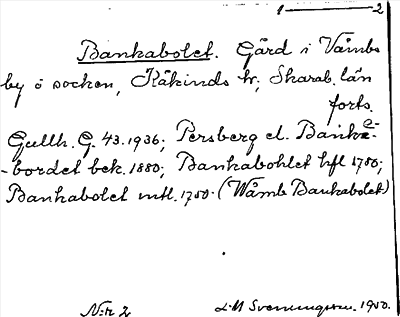 1 — 2
Bankabolet. Gård i Våmbs
by o socken, Kåkinds hr, Skarab. län
forts.
Gullh. G. 43. 1936; Persberg el. Banke-
-bordet bek. 1880; Bankabohlet hfl 1750;
Bankabolet mtl. 1750. (Wåmb Bankabolet)
N:r 2 L-M Svenungsson. 1950.